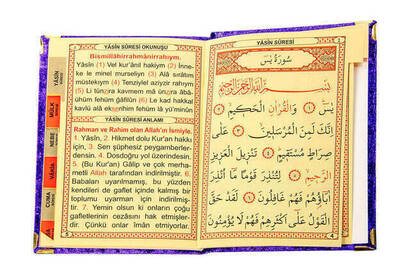 YÂSÎN SÛRESİ OKUNUŞU
Bismillâhirrahmânirrahîym.
Yâsîn (1) Vel kur'ânil hakiym (2) İnne-
ke le minel murseliyn (3) Alâ sırâtın
müstekîym (4) Tenziylel aziyzir rahiym
(5) Li tünzira kavmem mâ ünzira âbâ-
ühüm fehüm ğâfilûn (6) Le kad hakkal
kavlü alâ ekserihim fehüm lâ yü'minûn
YÂSÎN SÛRESİ ANLAMI
Rahman ve Rahim olan Allah'ın İsmiyle.
1. Yâsîn, 2. Hikmet dolu Kur'an hakkı
için, 3. Sen şüphesiz peygamberler-
densin. 4. Dosdoğru yol üzerindesin.
5. (Bu Kur'an) Gâlip ve çok merha-
metli Allah tarafından indirilmiştir. 6.
Babaları uyarılmamış, bu yüzden
kendileri de gaflet içinde kalmış bir
toplumu uyarman için indirilmiş-
tir. 7. Yemin olsun ki onların çoğu
gafletlerinin cezasını hak etmişler-
dir. Çünkü onlar iman etmiyorlar.
YÂSÎN
MÜLK
NEBE
VÂKIA
CUMA
YÂSÎN SÛRESİ
سُورَةُ يٰسٓ
بِسْمِ اللّٰهِ الرَّحْمٰنِ الرَّحِيمِ
يٰسٓ ﴿١﴾ وَالْقُرْاٰنِ الْحَكِيمِ ﴿٢﴾
اِنَّكَ لَمِنَ الْمُرْسَلِينَ ﴿٣﴾ عَلٰى
صِرَاطٍ مُسْتَقِيمٍ ﴿٤﴾ تَنْزِيلَ الْعَزِيزِ
الرَّحِيمِ ﴿٥﴾ لِتُنْذِرَ قَوْمًا مَا اُنْذِرَ
اٰبَاؤُهُمْ فَهُمْ غَافِلُونَ ﴿٦﴾ لَقَدْ حَقَّ
الْقَوْلُ عَلٰى اَكْثَرِهِمْ فَهُمْ لَا يُؤْمِنُونَ
4